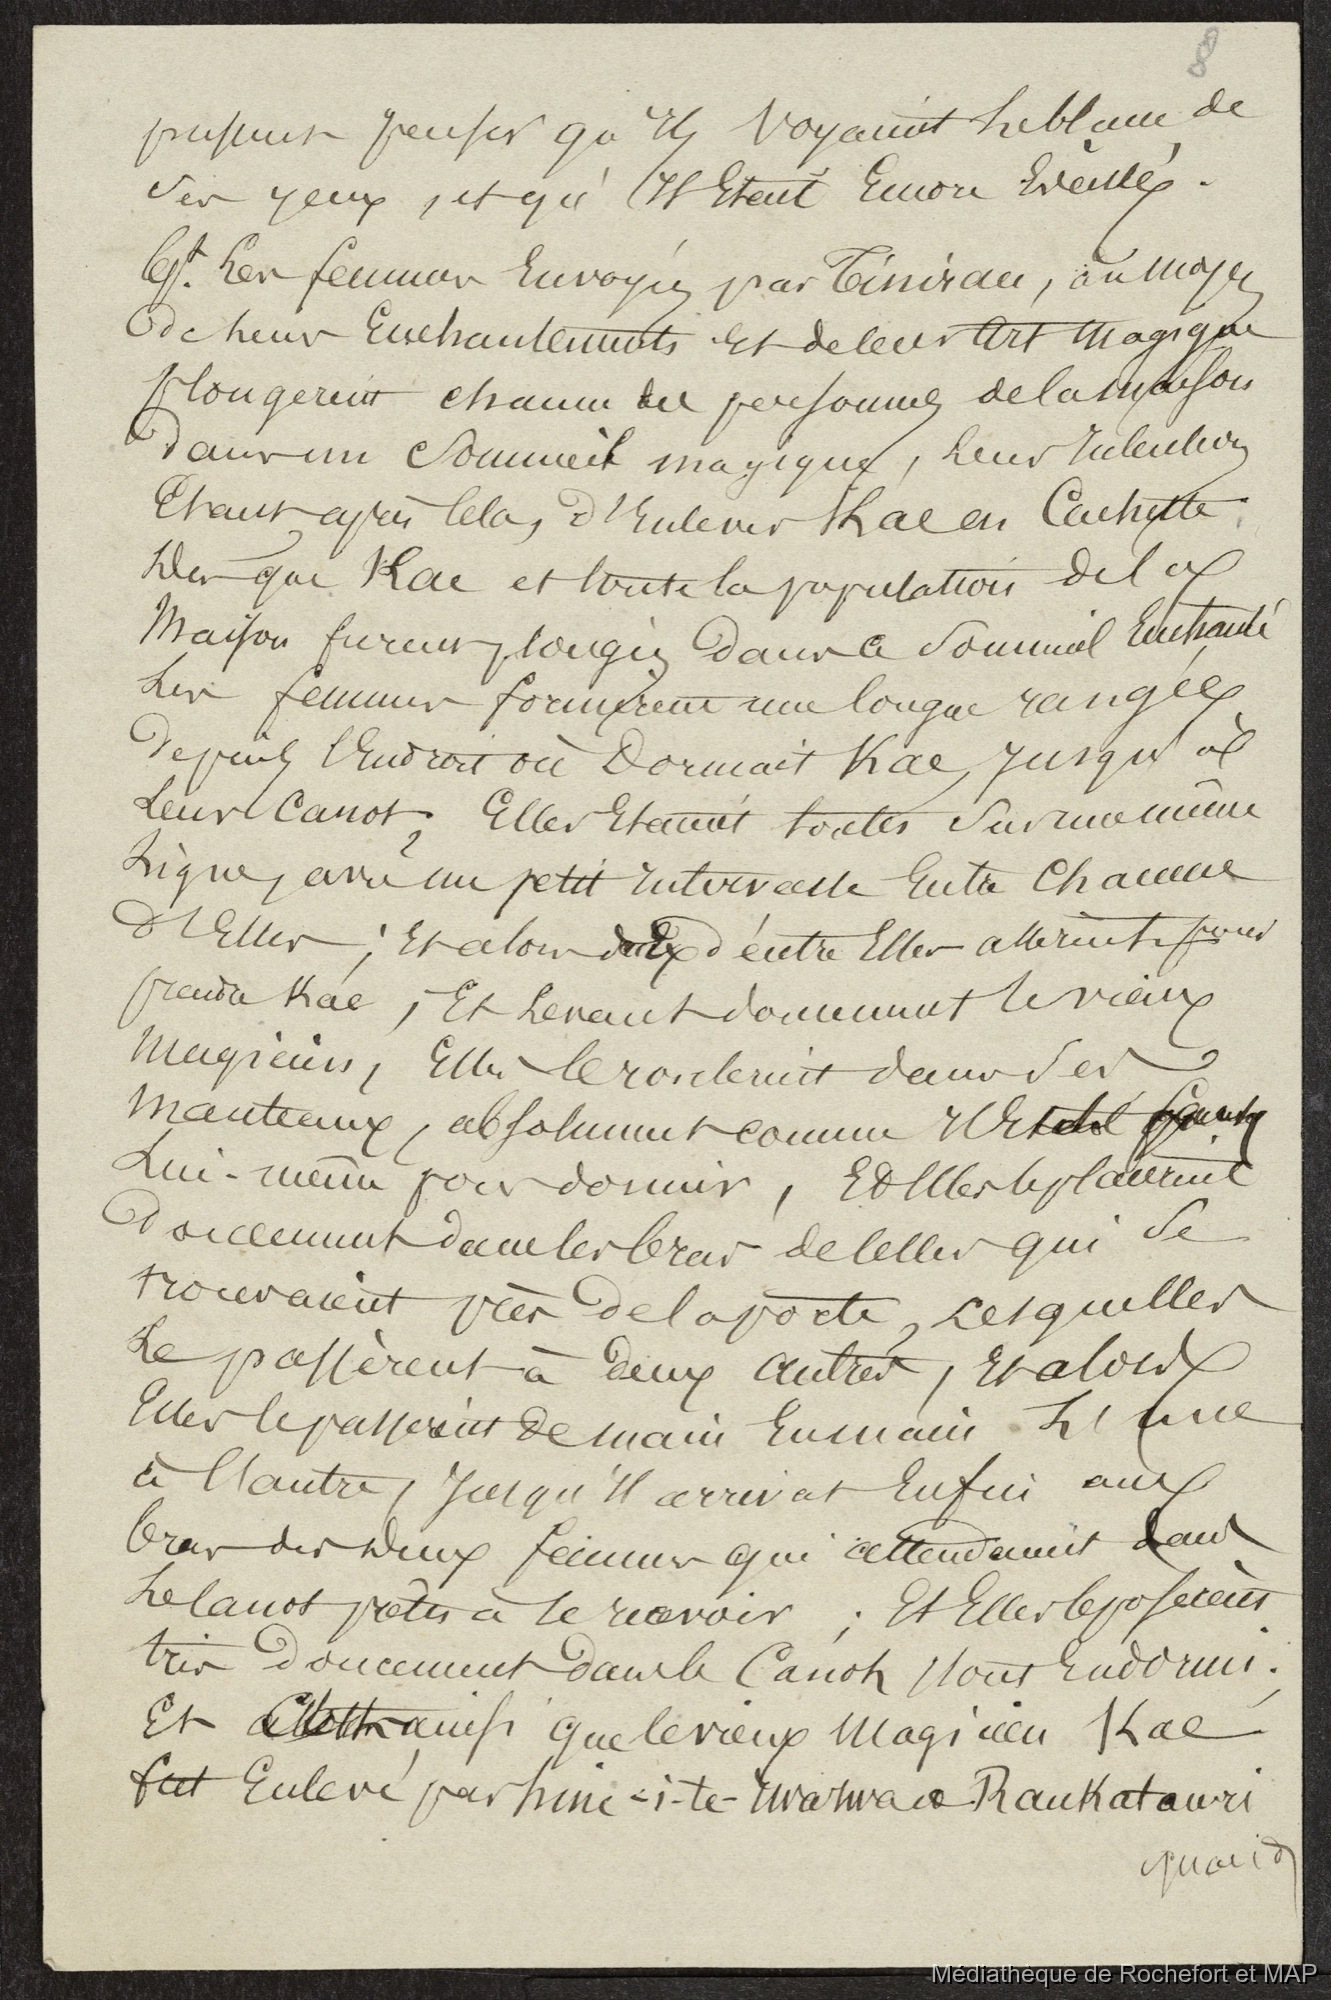 8
pussent penser qu'Ils Voyaient le blanc de
ses yeux, et qu'Il Etait Encore Eveillé.
Et. Les femmes Envoyées par Tinirau, au moyen
de leurs Enchantements Et de leur Art Magique
plongèrent chacune des personnes de la maison
dans un Sommeil magique, leur Intention
Etant après Cela, d'Enlever Kae en Cachette.
Dès que Kae et toute la population de la
Maison furent plongés dans ce Sommeil Enchanté
Les femmes formèrent une longue rangée
depuis l'Endroit où Dormait Kae, Jusqu'à
Leur Canot. Elles Etaient toutes sur une même
Ligne, avec un petit Intervalle Entre Chacune
d'Elles ; Et alors deux d'entre Elles allèrent pour
prendre Kae, Et Levant doucement le vieux
Magicien, Elles le roulèrent dans Ses
Manteaux, absolument comme s'Il s'était
Lui-même pour dormir, Et Elles le placèrent
Doucement dans les bras de Celles qui Se
trouvaient près de la porte, Lesquelles
Le passèrent à deux Autres, Et alors
Elles le passèrent De main En main L'une
à l'autre, Jusqu'Il arrivat Enfin aux
bras des deux femmes qui attendaient dans
Le Canot prêtes à le recevoir ; Et Elles le posèrent
très Doucement dans le Canot, tout Endormi.
Et ainsi que le vieux Magicien Kae
fut Enlevé par Hine-i-te-Iwaiwa & Raukatauri
quand
Médiathèque de Rochefort et MAP